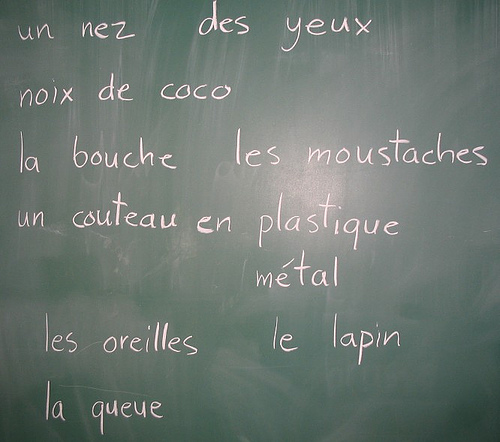 un nez des yeux
noix de coco
la bouche les moustaches
un couteau en plastique
métal
les oreilles le lapin
la queue